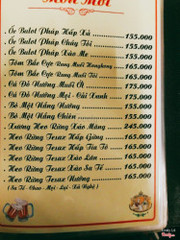 Món Mới
. Ốc Bulot Pháp Hấp Xả 155.000
. Ốc Bulot Pháp Cháy Tỏi 155.000
. Ốc Bulot Pháp Xào Me 155.000
. Tôm Bắc Cực Rang Muối Hongkong 165.000
. Tôm Bắc Cực Rang Muối Tỏi 165.000
. Cá Đỏ Nướng Muối Ớt 175.000
. Cá Đỏ Chưng Mẻ - Cải Xanh 175.000
. Bò Một Nắng Nướng 155.000
. Bò Một Nắng Chiên 155.000
. Xương Heo Rừng Xáo Măng 245.000
. Heo Rừng Texas Hấp Gừng 165.000
. Heo Rừng Texas Hấp Tía Tô 165.000
. Heo Rừng Texas Xào Lăn 165.000
. Heo Rừng Texas Xào Sa Tế 165.000
. Heo Rừng Texas Nướng 165.000
(Sa Tế - Chao - Mọi - Lụi - Xá Nghệ)